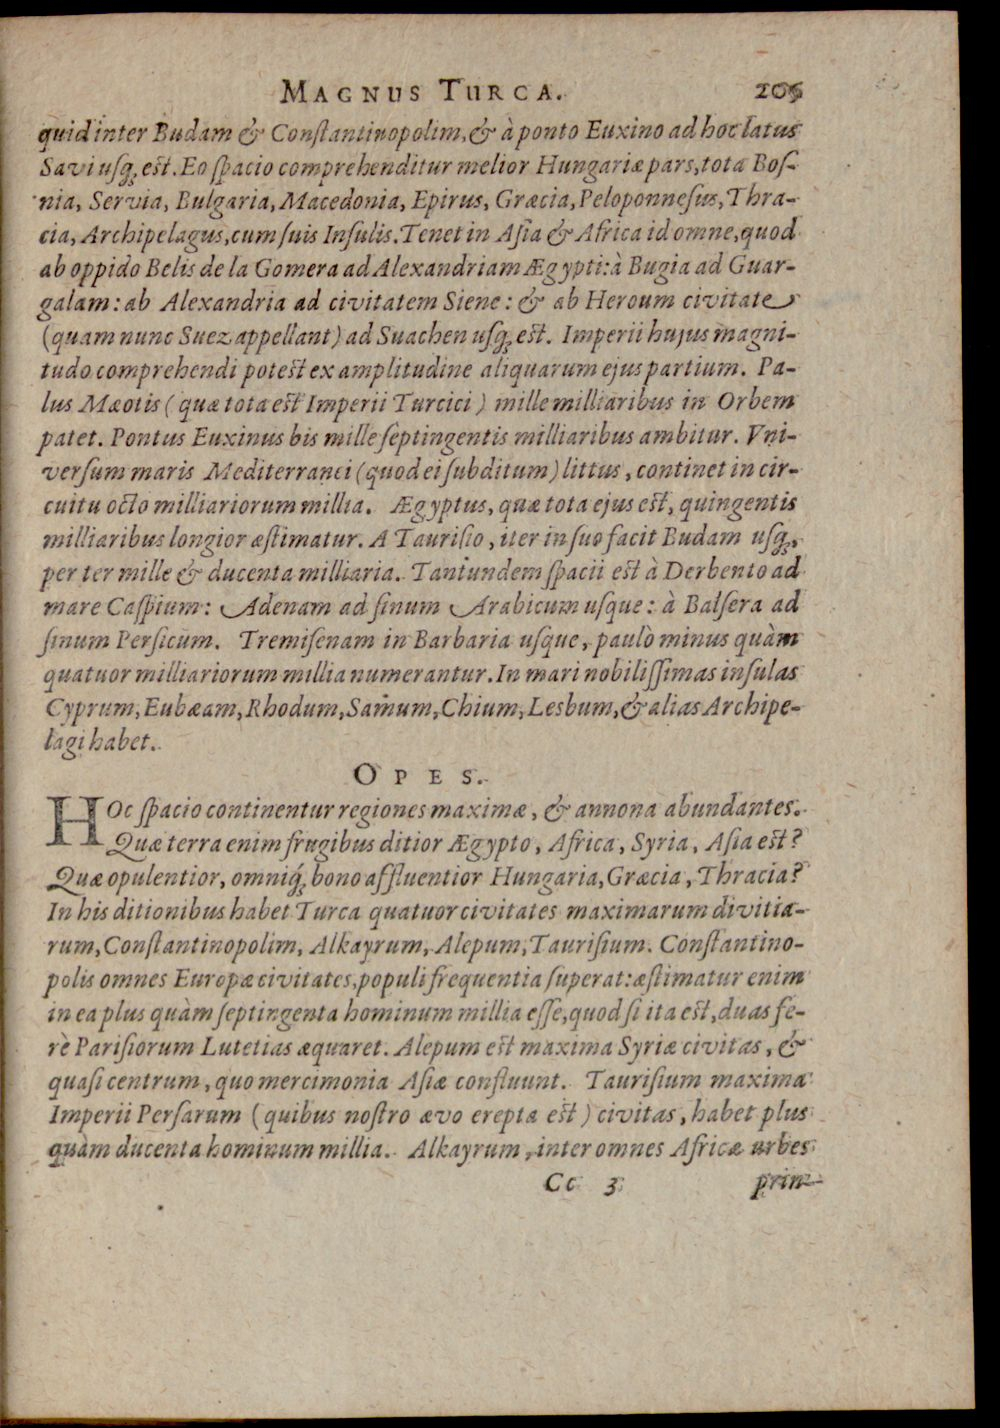 MAGNUS TURCA. 205
quid inter Budam & Constantinopolim, & à ponto Euxino ad hoc latus
Savi usq́; est. Eo spacio comprehenditur melior Hungariæ pars, tota Bos-
nia, Servia, Bulgaria, Macedonia, Epirus, Græcia, Peloponnesus, Thra-
cia, Archipelagus, cum suis Insulis. Tenet in Asia & Africa id omne, quod
ab oppido Belis de la Gomera ad Alexandriam Ægypti: à Bugia ad Guar-
galam: ab Alexandria ad civitatem Siene: & ab Heroum civitate
(quam nunc Suez appellant) ad Suachen usq́; est. Imperii hujus magni-
tudo comprehendi potest ex amplitudine aliquarum ejus partium. Pa-
lus Mæotis (quæ tota est Imperii Turcici) mille milliaribus in Orbem
patet. Pontus Euxinus bis mille septingentis milliaribus ambitur. Vni-
versum maris Mediterranei (quod ei subditum) littus, continet in cir-
cuitu octo milliariorum millia. Ægyptus, quæ tota ejus est, quingentis
milliaribus longior æstimatur. A Taurisio, iter in suo facit Budam usq́;
per ter mille & ducenta milliaria. Tantundem spacii est à Derbento ad
mare Caspium: Adenam ad sinum Arabicum usque: à Balsera ad
sinum Persicum. Tremisenam in Barbaria usque, paulò minus quàm
quatuor milliariorum millia numerantur. In mari nobilissimas insulas
Cyprum, Eubæam, Rhodum, Samum, Chium, Lesbum, & alias Archipe-
lagi habet.
OPES.
HOc spacio continentur regiones maximæ, & annona abundantes.
Quæ terra enim frugibus ditior Ægypto, Africa, Syria, Asia est?
Quæ opulentior, omniq́; bono affluentior Hungaria, Græcia, Thracia?
In his ditionibus habet Turca quatuor civitates maximarum divitia-
rum, Constantinopolim, Alkayrum, Alepum, Taurisium. Constantino-
polis omnes Europæ civitates, populi frequentia superat: æstimatur enim
in ea plus quàm septingenta hominum millia esse, quod si ita est, duas fe-
rè Parisiorum Lutetias æquaret. Alepum est maxima Syriæ civitas, &
quasi centrum, quo mercimonia Asiæ confluunt. Taurisium maxima
Imperii Persarum (quibus nostro ævo erepta est) civitas, habet plus
quàm ducenta hominum millia. Alkayrum, inter omnes Africæ urbes
Cc 3 prin-